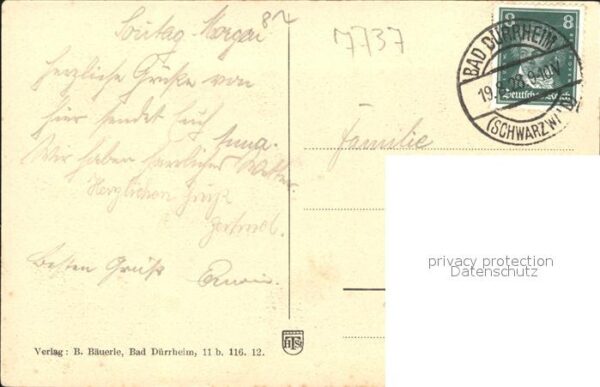 Sontag Morgen 82
herzliche Grüße von
hier sendet Euch
Anna.
Wir haben herrliches Wetter.
Herzlichen Gruß
Gertrud.
Besten Gruß Erwin.
Verlag: B. Bäuerle, Bad Dürrheim, 11 b. 116. 12.
7737
8 8
Deutsches Reich
BAD DÜRRHEIM
19.
(SCHWARZW)
Familie
privacy protection
Datenschutz